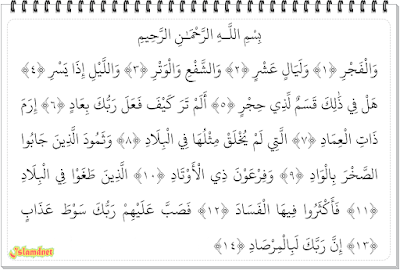 بِسْمِ اللَّـهِ الرَّحْمَـٰنِ الرَّحِيمِ
وَالْفَجْرِ ﴿١﴾ وَلَيَالٍ عَشْرٍ ﴿٢﴾ وَالشَّفْعِ وَالْوَتْرِ ﴿٣﴾ وَاللَّيْلِ إِذَا يَسْرِ ﴿٤﴾
هَلْ فِي ذَٰلِكَ قَسَمٌ لِّذِي حِجْرٍ ﴿٥﴾ أَلَمْ تَرَ كَيْفَ فَعَلَ رَبُّكَ بِعَادٍ ﴿٦﴾ إِرَمَ
ذَاتِ الْعِمَادِ ﴿٧﴾ الَّتِي لَمْ يُخْلَقْ مِثْلُهَا فِي الْبِلَادِ ﴿٨﴾ وَثَمُودَ الَّذِينَ جَابُوا
الصَّخْرَ بِالْوَادِ ﴿٩﴾ وَفِرْعَوْنَ ذِي الْأَوْتَادِ ﴿١٠﴾ الَّذِينَ طَغَوْا فِي الْبِلَادِ
﴿١١﴾ فَأَكْثَرُوا فِيهَا الْفَسَادَ ﴿١٢﴾ فَصَبَّ عَلَيْهِمْ رَبُّكَ سَوْطَ عَذَابٍ
﴿١٣﴾ إِنَّ رَبَّكَ لَبِالْمِرْصَادِ ﴿١٤﴾
Islamdnet